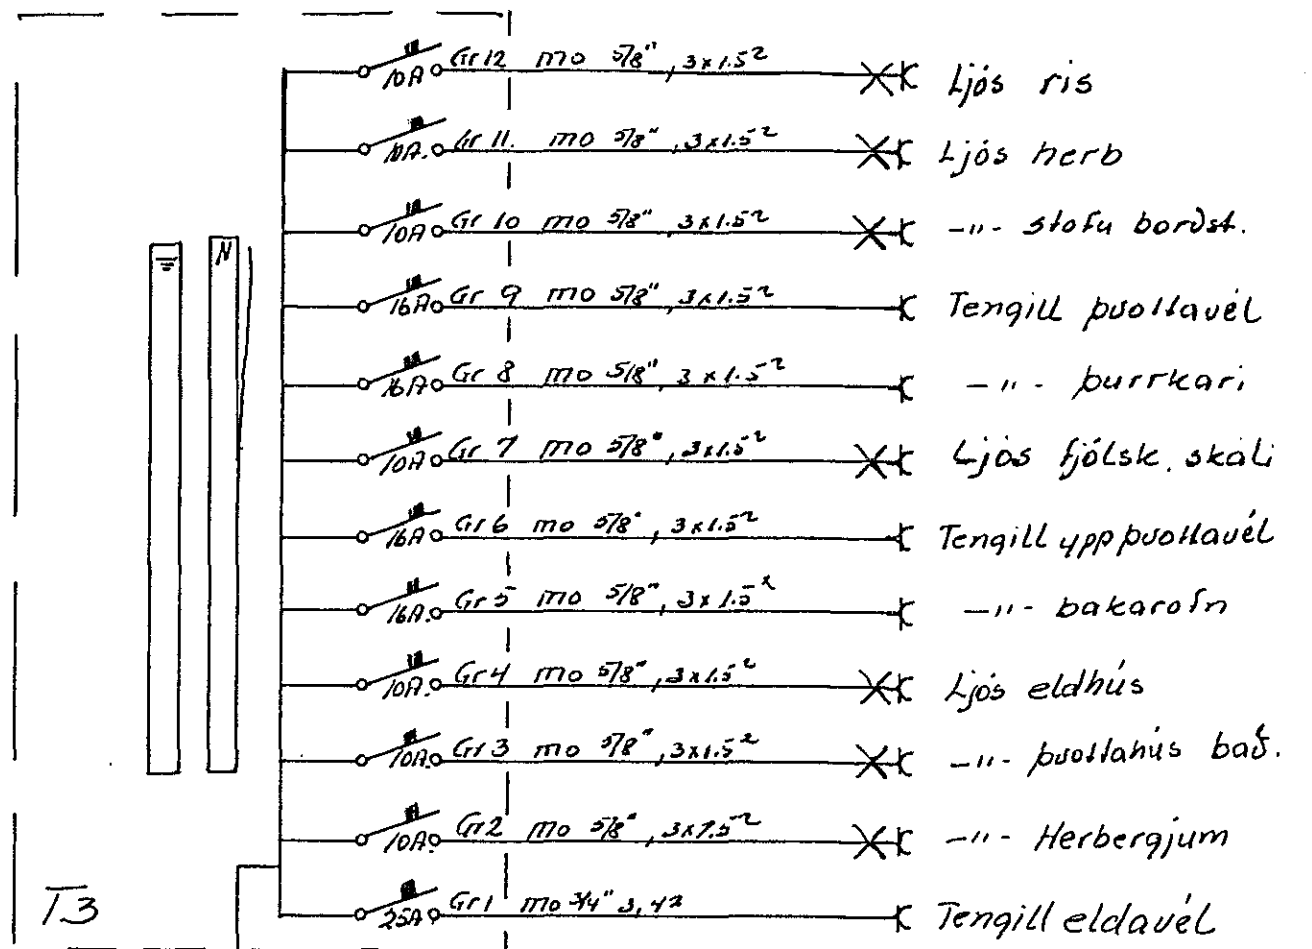 10A Gr 12 mo 5/8", 3x1.5² Ljós ris
10A. Gr 11. mo 5/8", 3x1.5² Ljós herb
10A Gr 10 mo 5/8", 3x1.5² -"- stofu borðst.
N
16A Gr 9 mo 5/8", 3x1.5² Tengill þvottavél
16A Gr 8 mo 5/8", 3x1.5² -"- þurrkari
10A Gr 7 mo 5/8", 3x1.5² Ljós fjölsk. skáli
16A Gr 6 mo 5/8", 3x1.5² Tengill uppþvottavél
16A. Gr 5 mo 5/8", 3x1.5² -"- bakarofn
10A. Gr 4 mo 5/8", 3x1.5² Ljós eldhús
10A. Gr 3 mo 5/8", 3x1.5² -"- þvottahús bað.
10A. Gr 2 mo 5/8", 3x1.5² -"- Herbergjum
25A Gr 1 mo 3/4" 3, 4² Tengill eldavél
T3